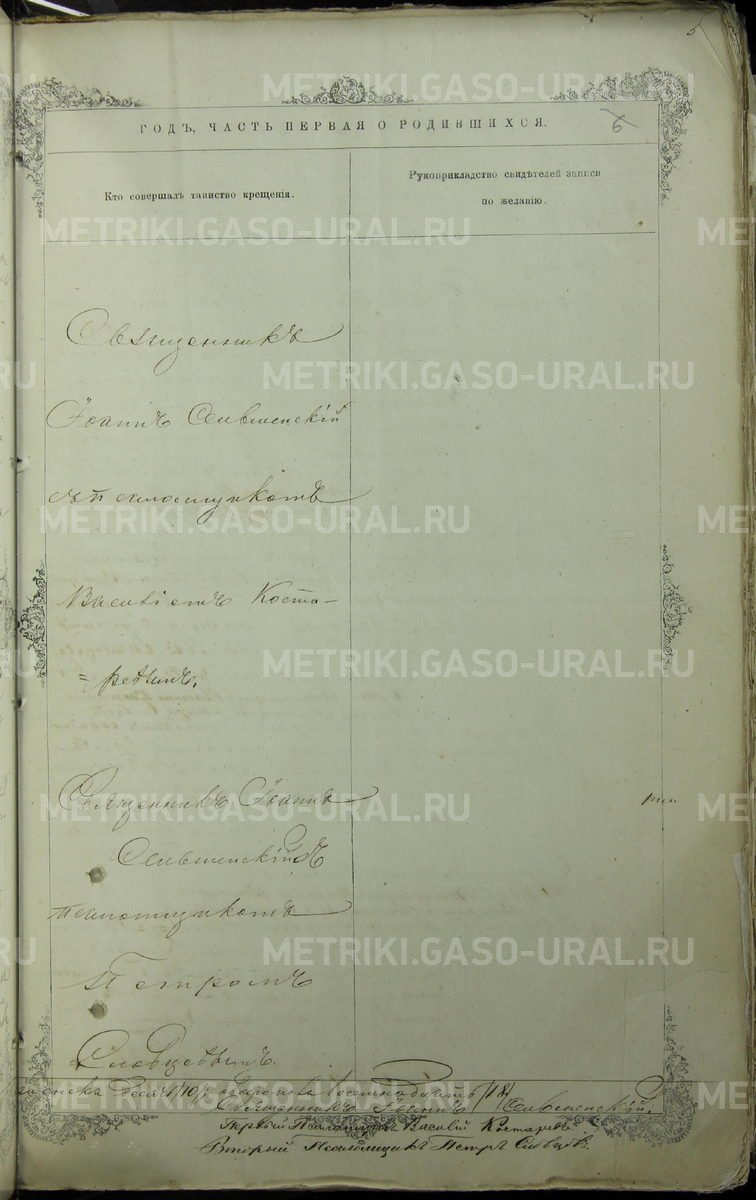 5
ГОДЪ, ЧАСТЬ ПЕРВАЯ О РОДИВШИХСЯ.
6
Кто совершалъ таинство крещенія.
Рукоприкладство свидѣтелей записи
по желанію.
Священникъ
Іоаннъ Сельменскій
съ псаломщикомъ
Василіемъ Коста-
=ревымъ.
Священникъ Іоаннъ
Сельменскій съ
псаломщикомъ
Петромъ
Словцовымъ.
восемнадцать /18/
Священникъ Іоаннъ Сельменскій.
Первый Псаломщикъ Василій Костаревъ
Вторый Псаломщикъ Петръ Словцовъ.
METRIKI.GASO-URAL.RU